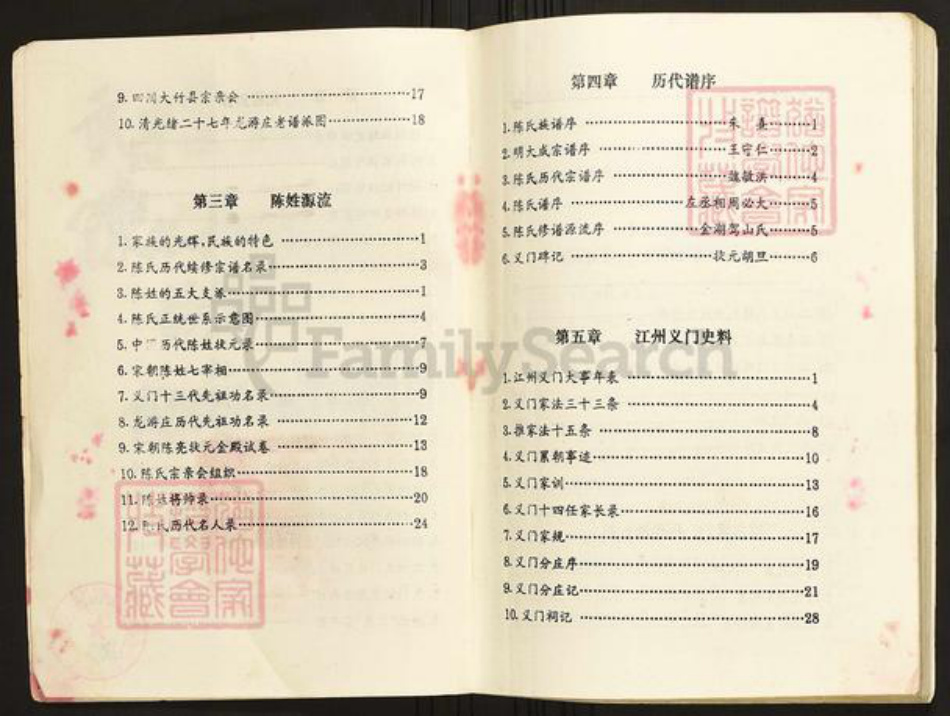 9. 四川大竹县宗亲会 ……………………17
10. 清光绪二十七年龙游庄老谱派图…………18
第三章 陈姓源流
1. 家族的光辉,民族的特色 ………………1
2. 陈氏历代续修宗谱名录…………………3
3. 陈姓的五大支派…………………………1
4. 陈氏正统世系示意图……………………4
5. 中 历代陈姓状元录……………………7
6. 宋朝陈姓七宰相…………………………9
7. 义门十三代先祖功名录…………………9
8. 龙游庄历代先祖功名录 ………………12
9. 宋朝陈亮状元金殿试卷 ………………13
10. 陈氏宗亲会组织………………………18
11. 陈姓将帅录……………………………20
12. 陈氏历代名人录………………………24
第四章 历代谱序
1. 陈氏族谱序 ………………朱 熹………1
2. 明大成宗谱序 ……………王守仁………2
3. 陈氏历代宗谱序 …………魏敏洪………4
4. 陈氏谱序 …………左丞相周必大………5
5. 陈氏修谱源流序 ………金湖驾山氏……5
6. 义门碑记 ………………状元胡旦………6
第五章 江州义门史料
1. 江州义门大事年表 ……………………1
2. 义门家法三十三条 ……………………4
3. 推家法十五条 …………………………8
4. 义门累朝事迹…………………………10
5. 义门家训………………………………13
6. 义门十四任家长录……………………16
7. 义门家规………………………………17
8. 义门分庄序……………………………19
9. 义门分庄记……………………………21
10. 义门祠记 ……………………………28
FamilySearch